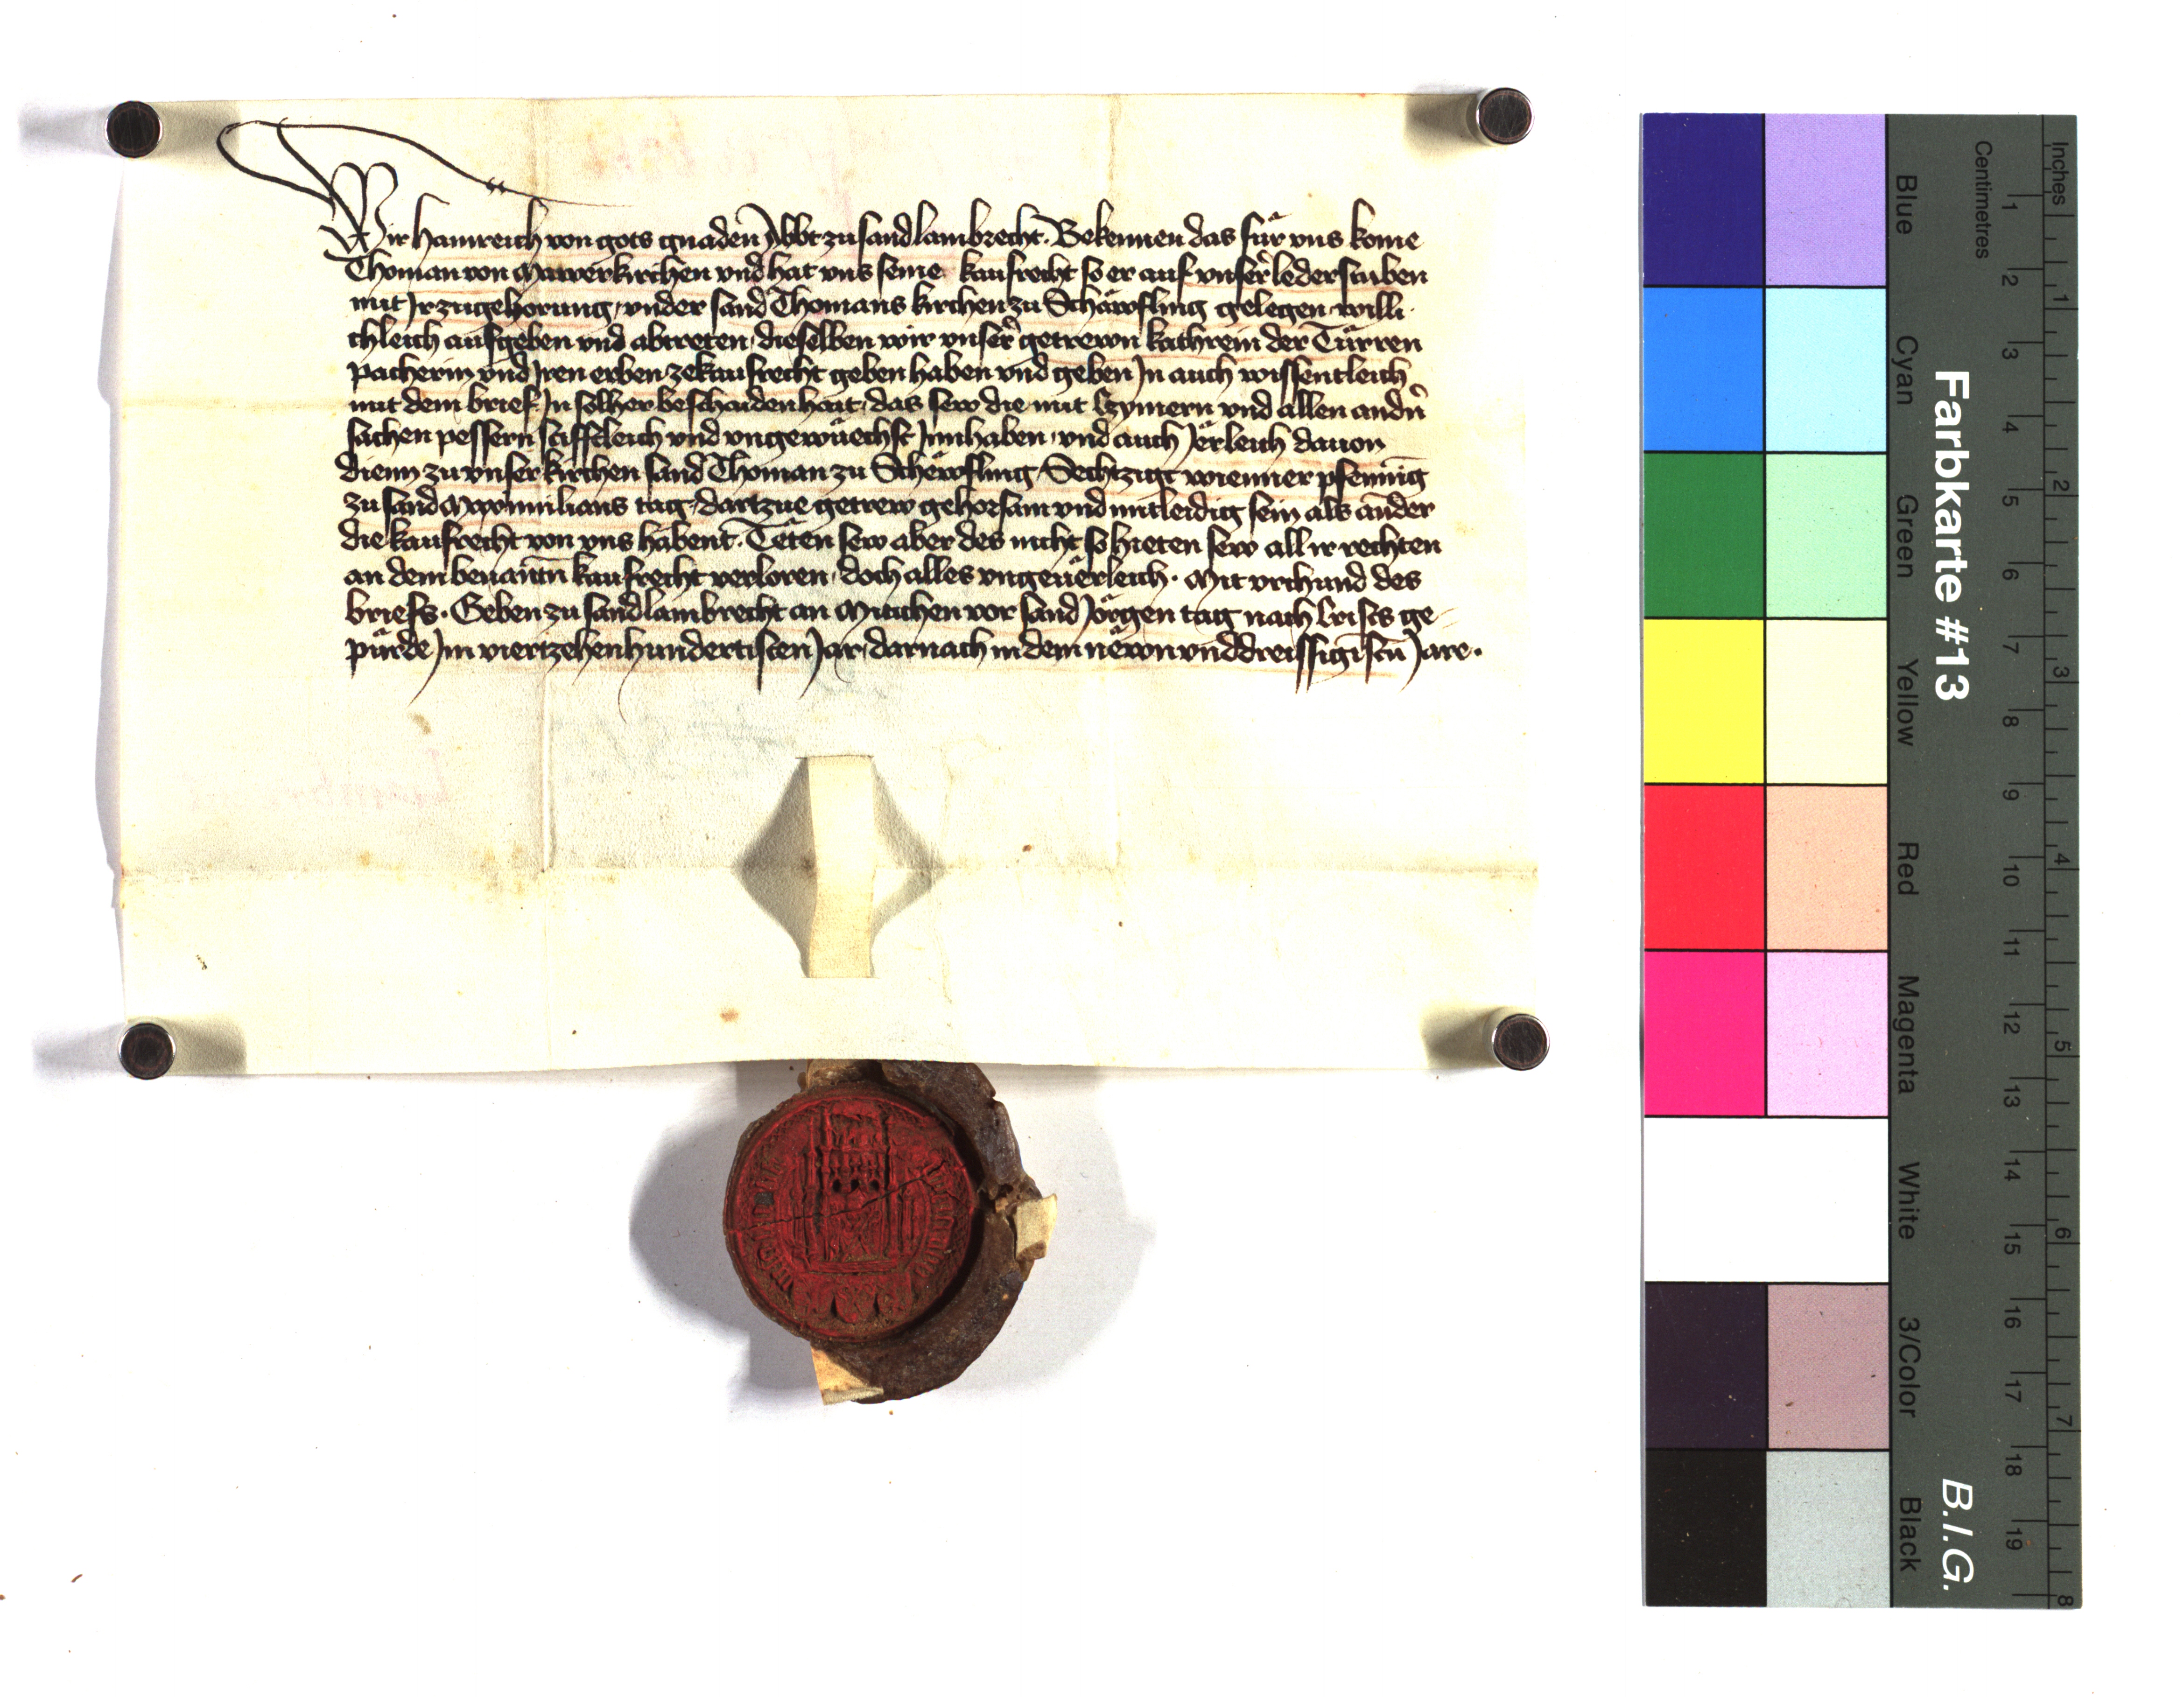 Wir hainreich von gots gnaden Abbt zu sand lambrecht. Bekennen das für vns kome
Thoman von Mawerkirchen vnd hat vns seine kaufrecht so er auf vnser lederstuben
mit Irzugehorung, vnder sand Thomans kirchen zu Schäwfling gelegen willi
chleich aufgeben vnd abtreten, dieselben wir vnser getrewn kathrein der Türren
pacherin vnd Iren erben zekaufrecht geben haben vnd geben In auch wissentleich
mit dem brief. In solher beschaidenhait, das sew die mit Czymern vnd allen andn
sachen pessern stifftleich vnd vngewüechst Innhaben, vnd auch Jerleich dauon
dienn zu vnser kirchen sand Thoman zu Schewfling, Sechtzigt wienner pfennig
zu sand Maximilians tag, dartzue getrew gehorsam vnd mitleidig sein als ander
die kaufrecht von vns habent. Teten sew aber des nicht so hieten sew all ir rechten
an dem benantn kaufrecht verloren, doch alles vngeuerleich. Mit vrchund des
briefs. Geben zu sand lambrecht an Mitichen vor sand Jörgen tag nach Crists ge-
pürde Im viertzehenhundertisten Jar, darnach in dem newn vnd dreissigistn Jare.
Farbkarte #13
B.I.G.
Centimetres
Inches
Blue
Cyan
Green
Yellow
Red
Magenta
White
3/Color
Black
1 2 3 4 5 6 7 8 9 10 11 12 13 14 15 16 17 18 19
1 2 3 4 5 6 7 8